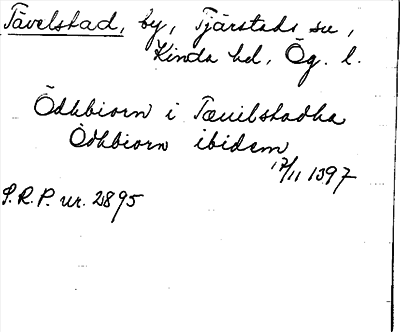 Tävelstad, by, Tjärstads sn,
Kinda hd, Ög. l.
Ödhbiorn i Tæuilstadha
Ödhbiorn ibidem
17/11 1397
S.R.P. nr. 2895